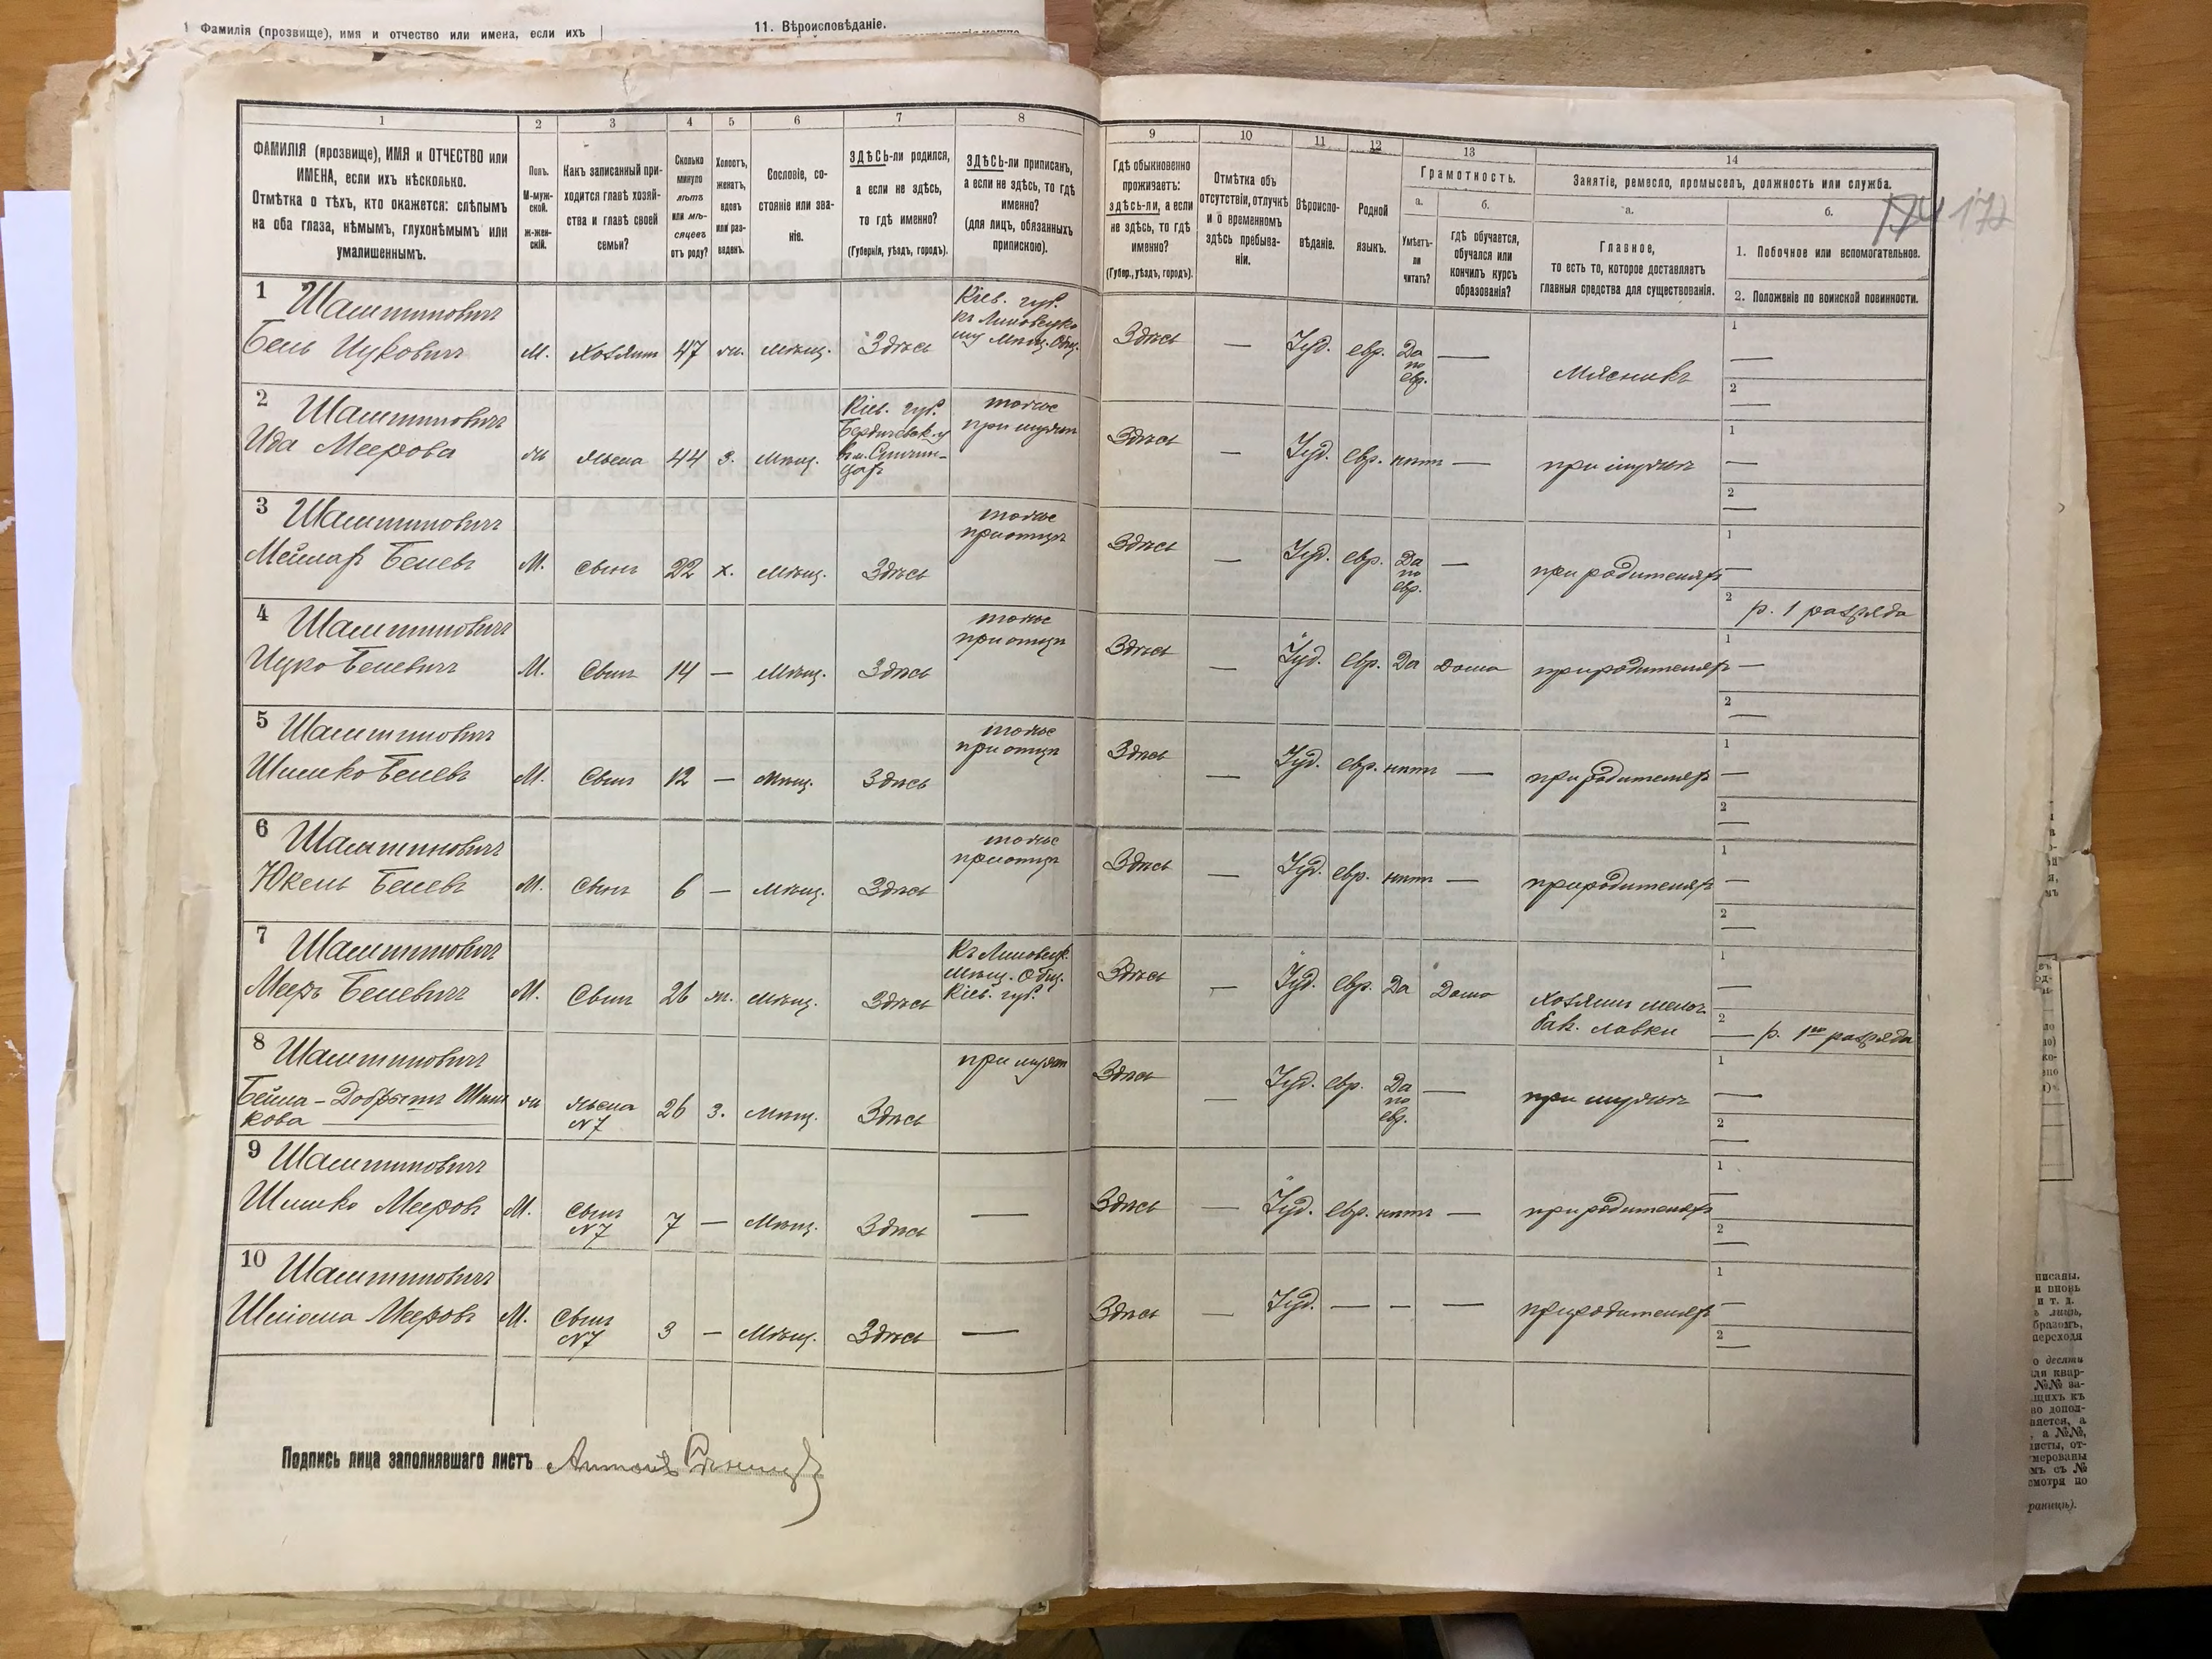 Фамилія (прозвище), имя и отчество или имена, если ихъ
11. Вѣроисповѣданіе.
1
2
3
4
5
6
7
8
9
10
11
12
13
14
ФАМИЛІЯ (прозвище), ИМЯ и ОТЧЕСТВО или
ИМЕНА, если ихъ нѣсколько.
Отмѣтка о тѣхъ, кто окажется: слѣпымъ
на оба глаза, нѣмымъ, глухонѣмымъ или
умалишеннымъ.
Полъ.
М-муж-
ской.
ж-жен-
скій.
Какъ записанный при-
ходится главѣ хозяй-
ства и главѣ своей
семьи?
Сколько
минуло
лѣтъ
или мѣ-
сяцевъ
отъ роду?
Холостъ,
женатъ,
вдовъ
или раз-
веденъ.
Сословіе, со-
стояніе или зва-
ніе.
ЗДѢСЬ-ли родился,
а если не здѣсь,
то гдѣ именно?
(Губернія, уѣздъ, городъ).
ЗДѢСЬ-ли приписанъ,
а если не здѣсь, то гдѣ
именно?
(для лицъ, обязанныхъ
припискою).
Гдѣ обыкновенно
проживаетъ:
здѣсь-ли, а если
не здѣсь, то гдѣ
именно?
(Губер., уѣздъ, городъ).
Отмѣтка объ
отсутствіи, отлучкѣ
и о временномъ
здѣсь пребыва-
ніи.
Вѣроиспо-
вѣданіе.
Родной
языкъ.
Грамотность.
а.
Умѣетъ-
ли
читать?
б.
гдѣ обучается,
обучался или
кончилъ курсъ
образованія?
Занятіе, ремесло, промыселъ, должность или служба.
а.
Главное,
то есть то, которое доставляетъ
главныя средства для существованія.
б.
1. Побочное или вспомогательное.
2. Положеніе по воинской повинности.
174 172
1 Шаштиновичъ
Бень Ицковичъ
М. хозяин 47 ж. мѣщ. Здѣсь
Кіев. губ.
къ Липовецко
му Мѣщ. Общ.
Здѣсь — Іуд. евр. Да
по
евр. — Мясникъ
1 —
2 —
2 Шаштиновичъ
Ида Меерова
ж жена 44 з. мѣщ.
Кіев. губ.
Бердичевск. у
тоже
при мужѣ
Здѣсь — Іуд. евр. нѣтъ — при мужѣ
1 —
2 —
3 Шаштиновичъ
Бенев
М. сынъ 22 х. мѣщ. Здѣсь
тоже
при отцѣ
Здѣсь — Іуд. евр. Да
по
евр. — при родителяхъ
1 —
2 р. 1 разряда
4 Шаштиновичъ
Ицко Беневичъ
М. Сынъ 14 — мѣщ. Здѣсь
тоже
при отцѣ
Здѣсь — Іуд. евр. Да Дома при родителяхъ
1 —
2 —
5 Шаштиновичъ
Шимко Беневъ
М. Сынъ 12 — мѣщ. Здѣсь
тоже
при отцѣ
Здѣсь — Іуд. евр. нѣтъ — при родителяхъ
1 —
2 —
6 Шаштиновичъ
Юкель Беневъ
М. Сынъ 6 — мѣщ. Здѣсь
тоже
при отцѣ
Здѣсь — Іуд. евр. нѣтъ — при родителяхъ
1 —
2 —
7 Шаштиновичъ
Меер Беневичъ
М. Сынъ 26 ж. мѣщ. Здѣсь
Къ Липовецк.
мѣщ. Общ.
Кіев. губ.
Здѣсь — Іуд. евр. Да Дома
хозяин мелоч.
бак. лавки
1 —
2 — р. 1го разряда
8 Шаштиновичъ
Бейла-
кова
ж жена
N7
26 з. мѣщ. Здѣсь при мужѣ
Здѣсь — Іуд. евр. Да
по
евр. — при мужѣ
1 —
2 —
9 Шаштиновичъ
Шимко Мееровъ
М. Сынъ
N7
7 — Мѣщ. Здѣсь —
Здѣсь — Іуд. евр. нѣтъ — при родителяхъ
1 —
2 —
10 Шаштиновичъ
Шліома Мееровъ
М. Сынъ
N7
3 — Мѣщ. Здѣсь —
Здѣсь — Іуд. — — — при родителяхъ
1 —
2 —
Подпись лица заполнявшаго листъ Антонъ